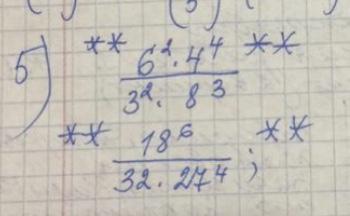 5) ** 6² · 4⁴ **
3² · 8³
** 18⁶ **
32 · 27⁴ ;